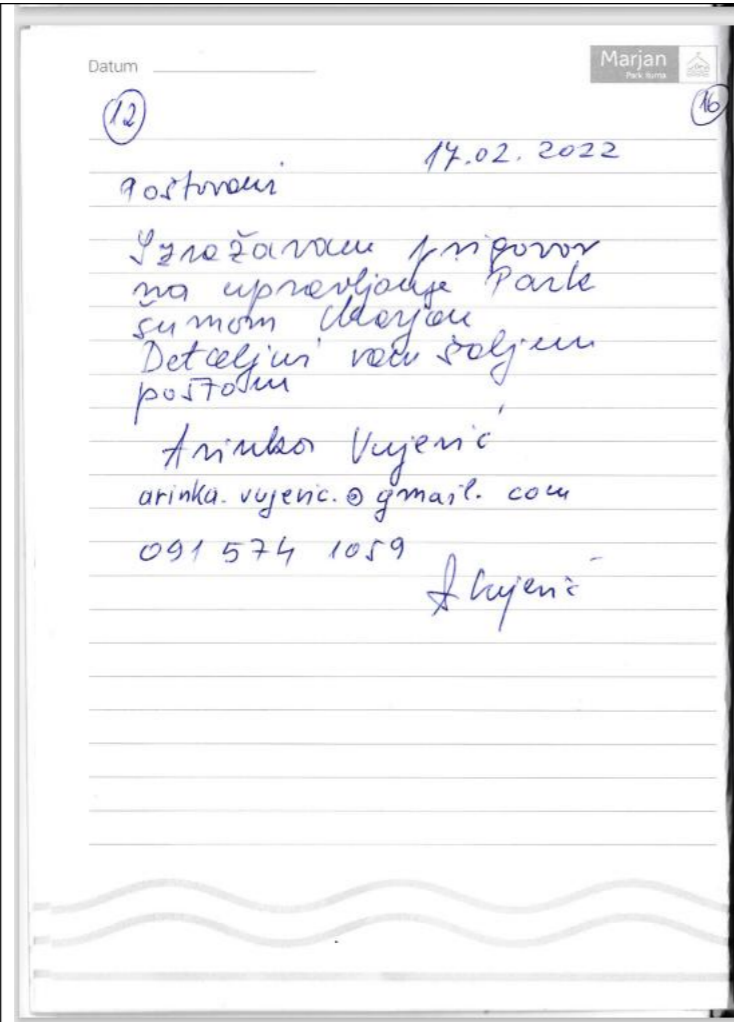 Datum
Marjan
Park šuma
12
16
17.02.2022
Poštovani
Izražavam prigovor
na upravljanje Park
šumom Marjan
Detaljni vam šaljem
poštom
Arinka Vujević
arinka.vujevic.@gmail.com
091 574 1059
A Vujević